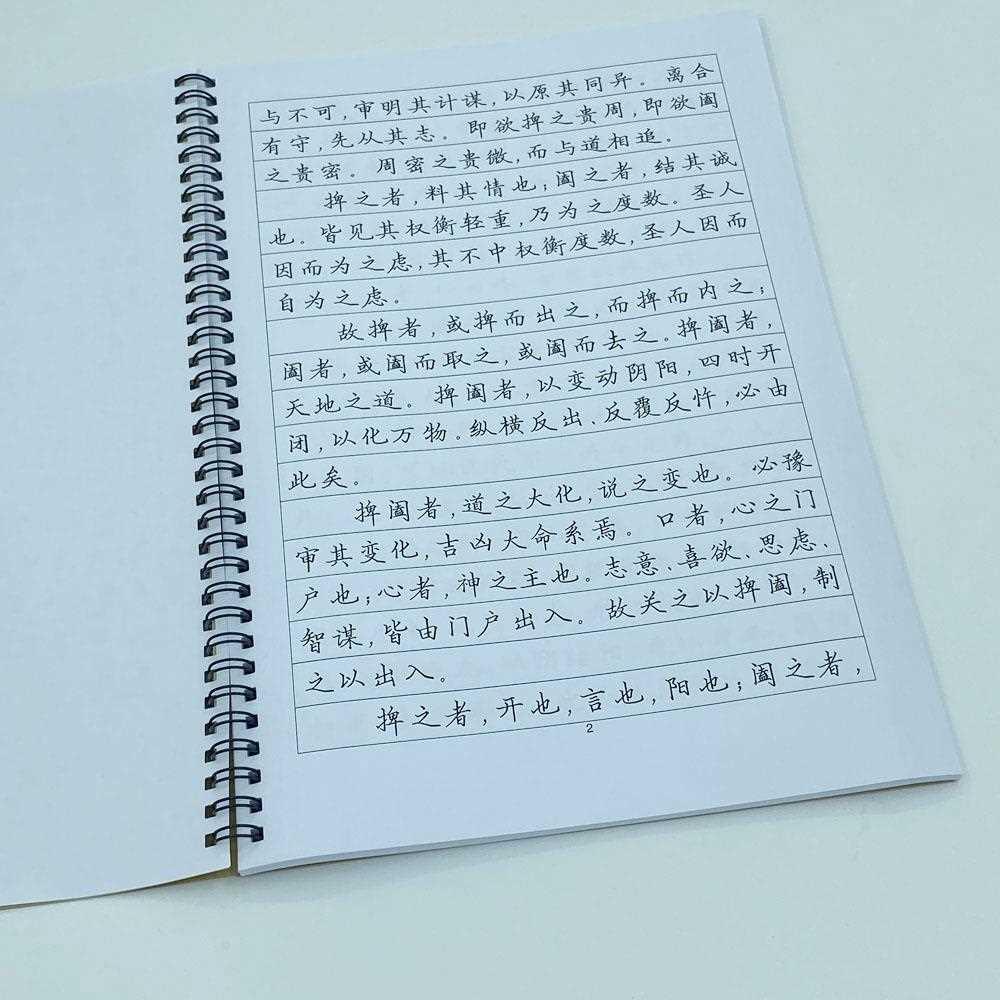 与不可，审明其计谋，以原其同异。离合
有守，先从其志。即欲捭之贵周，即欲阖
之贵密。周密之贵微，而与道相追。
捭之者，料其情也；阖之者，结其诚
也。皆见其权衡轻重，乃为之度数。圣人
因而为之虑，其不中权衡度数，圣人因而
自为之虑。
故捭者，或捭而出之，而捭而内之；
阖者，或阖而取之，或阖而去之。捭阖者，
天地之道。捭阖者，以变动阴阳，四时开
闭，以化万物。纵横反出、反覆反忤，必由
此矣。
捭阖者，道之大化，说之变也。必豫
审其变化，吉凶大命系焉。口者，心之门
户也；心者，神之主也。志意、喜欲、思虑、
智谋，皆由门户出入。故关之以捭阖，制
之以出入。
捭之者，开也，言也，阳也；阖之者，
2